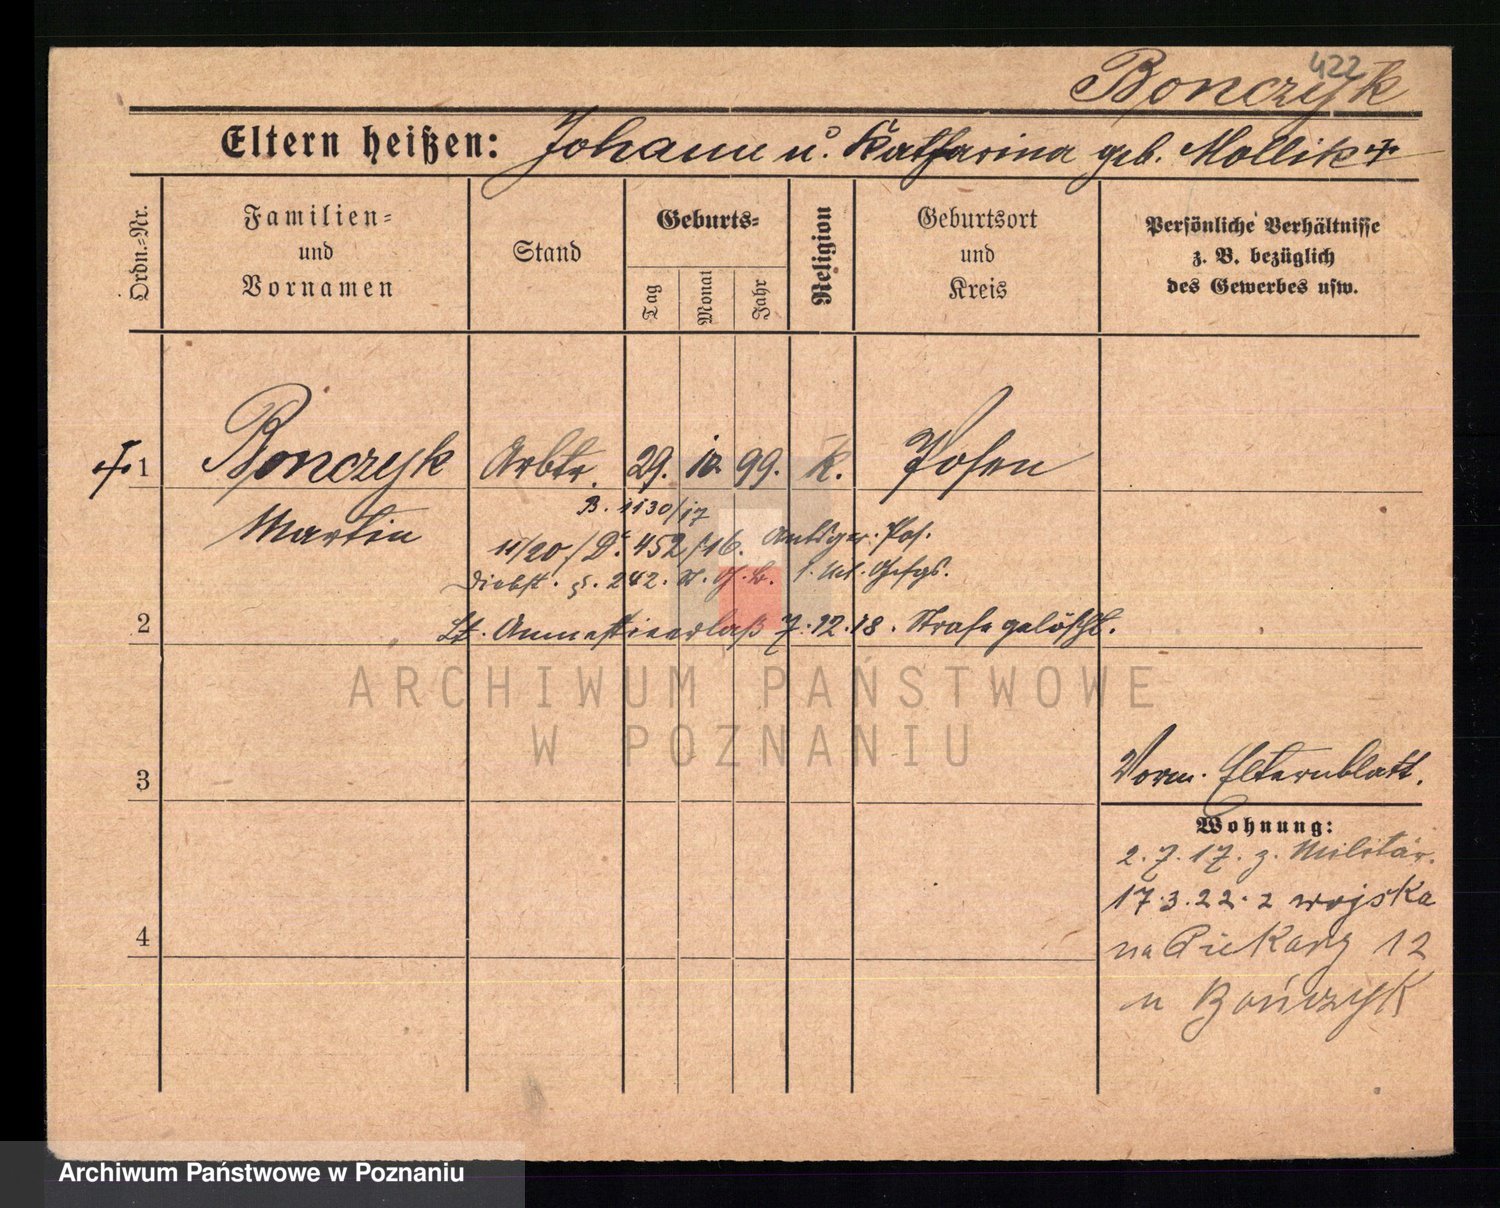 422
Bonczyk
Eltern heißen: Johann u. Katharina geb. Mollik
Ordn.-Nr.
Familien-
und
Vornamen
Stand
Geburts-
Tag
Monat
Jahr
Religion
Geburtsort
und
Kreis
Persönliche Verhältnisse
z. B. bezüglich
des Gewerbes usw.
1 Bonczyk Arbtr. 29. 10. 99. K. Posen
Martin
B. 1130/17
11/20/ D. 452/16. Amtsger. Pos.
Diebst. §. 242. St. G. B. Gefgs.
2
Lt. Amnestieerlaß 7.12.18. Strafe gelöscht.
ARCHIWUM PAŃSTWOWE
W POZNANIU
3
Vorm. Elternblatt.
Wohnung:
2.7.17. z. Militär.
17.3.22. z wojska
4
na Piekary 12
u Bończyk
Archiwum Państwowe w Poznaniu